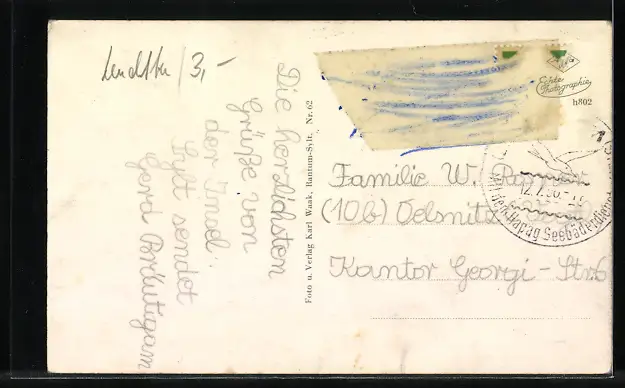 Leuchttu / 3,-
Die herzlichsten
Grüße von
der Insel
Sylt sendet
Gerd Bräutigam
Foto u. Verlag Karl Waak, Rantum-Sylt, Nr. 62
Echte
Photographie
h802
Familie W.
(10b) Oelsnitz
Kantor Georgi-Str. 6
12.7.56
Hapag Seebäderdienst